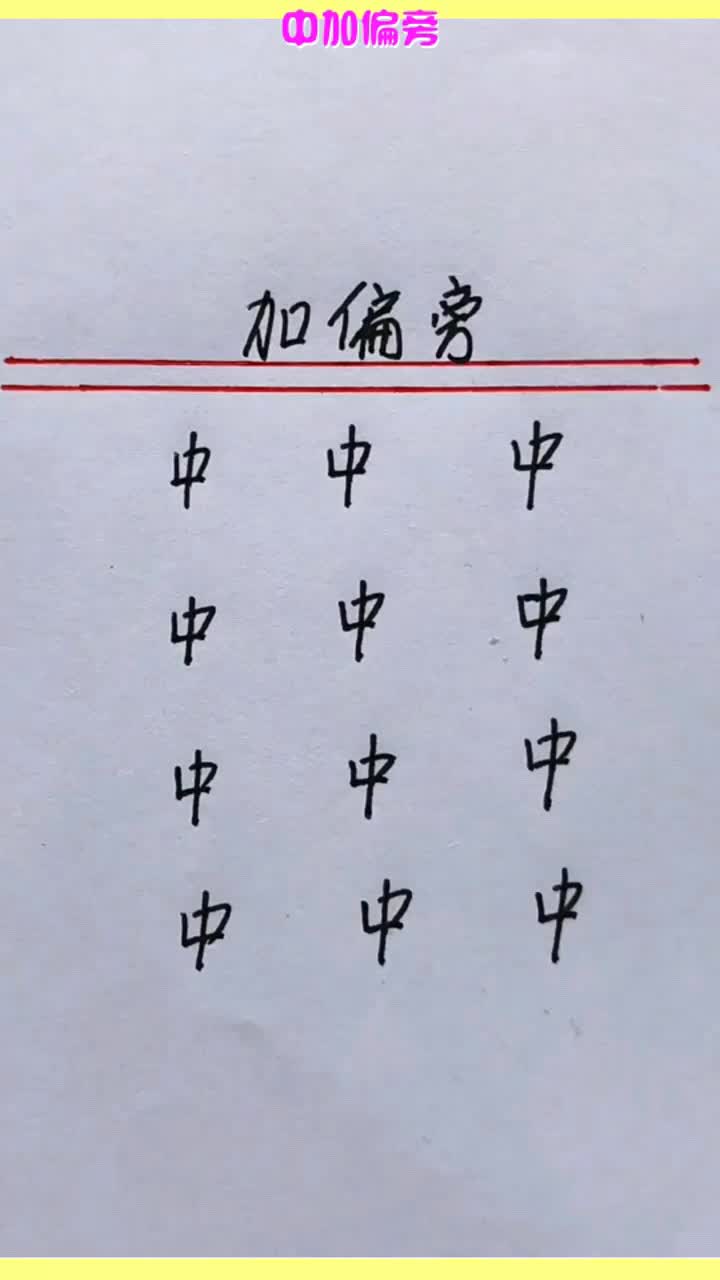 中加偏旁
加偏旁
中 中 中
中 中 中
中 中 中
中 中 中